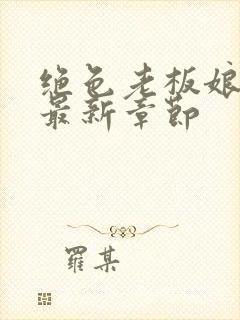 绝色老板娘
最新章節
羅某